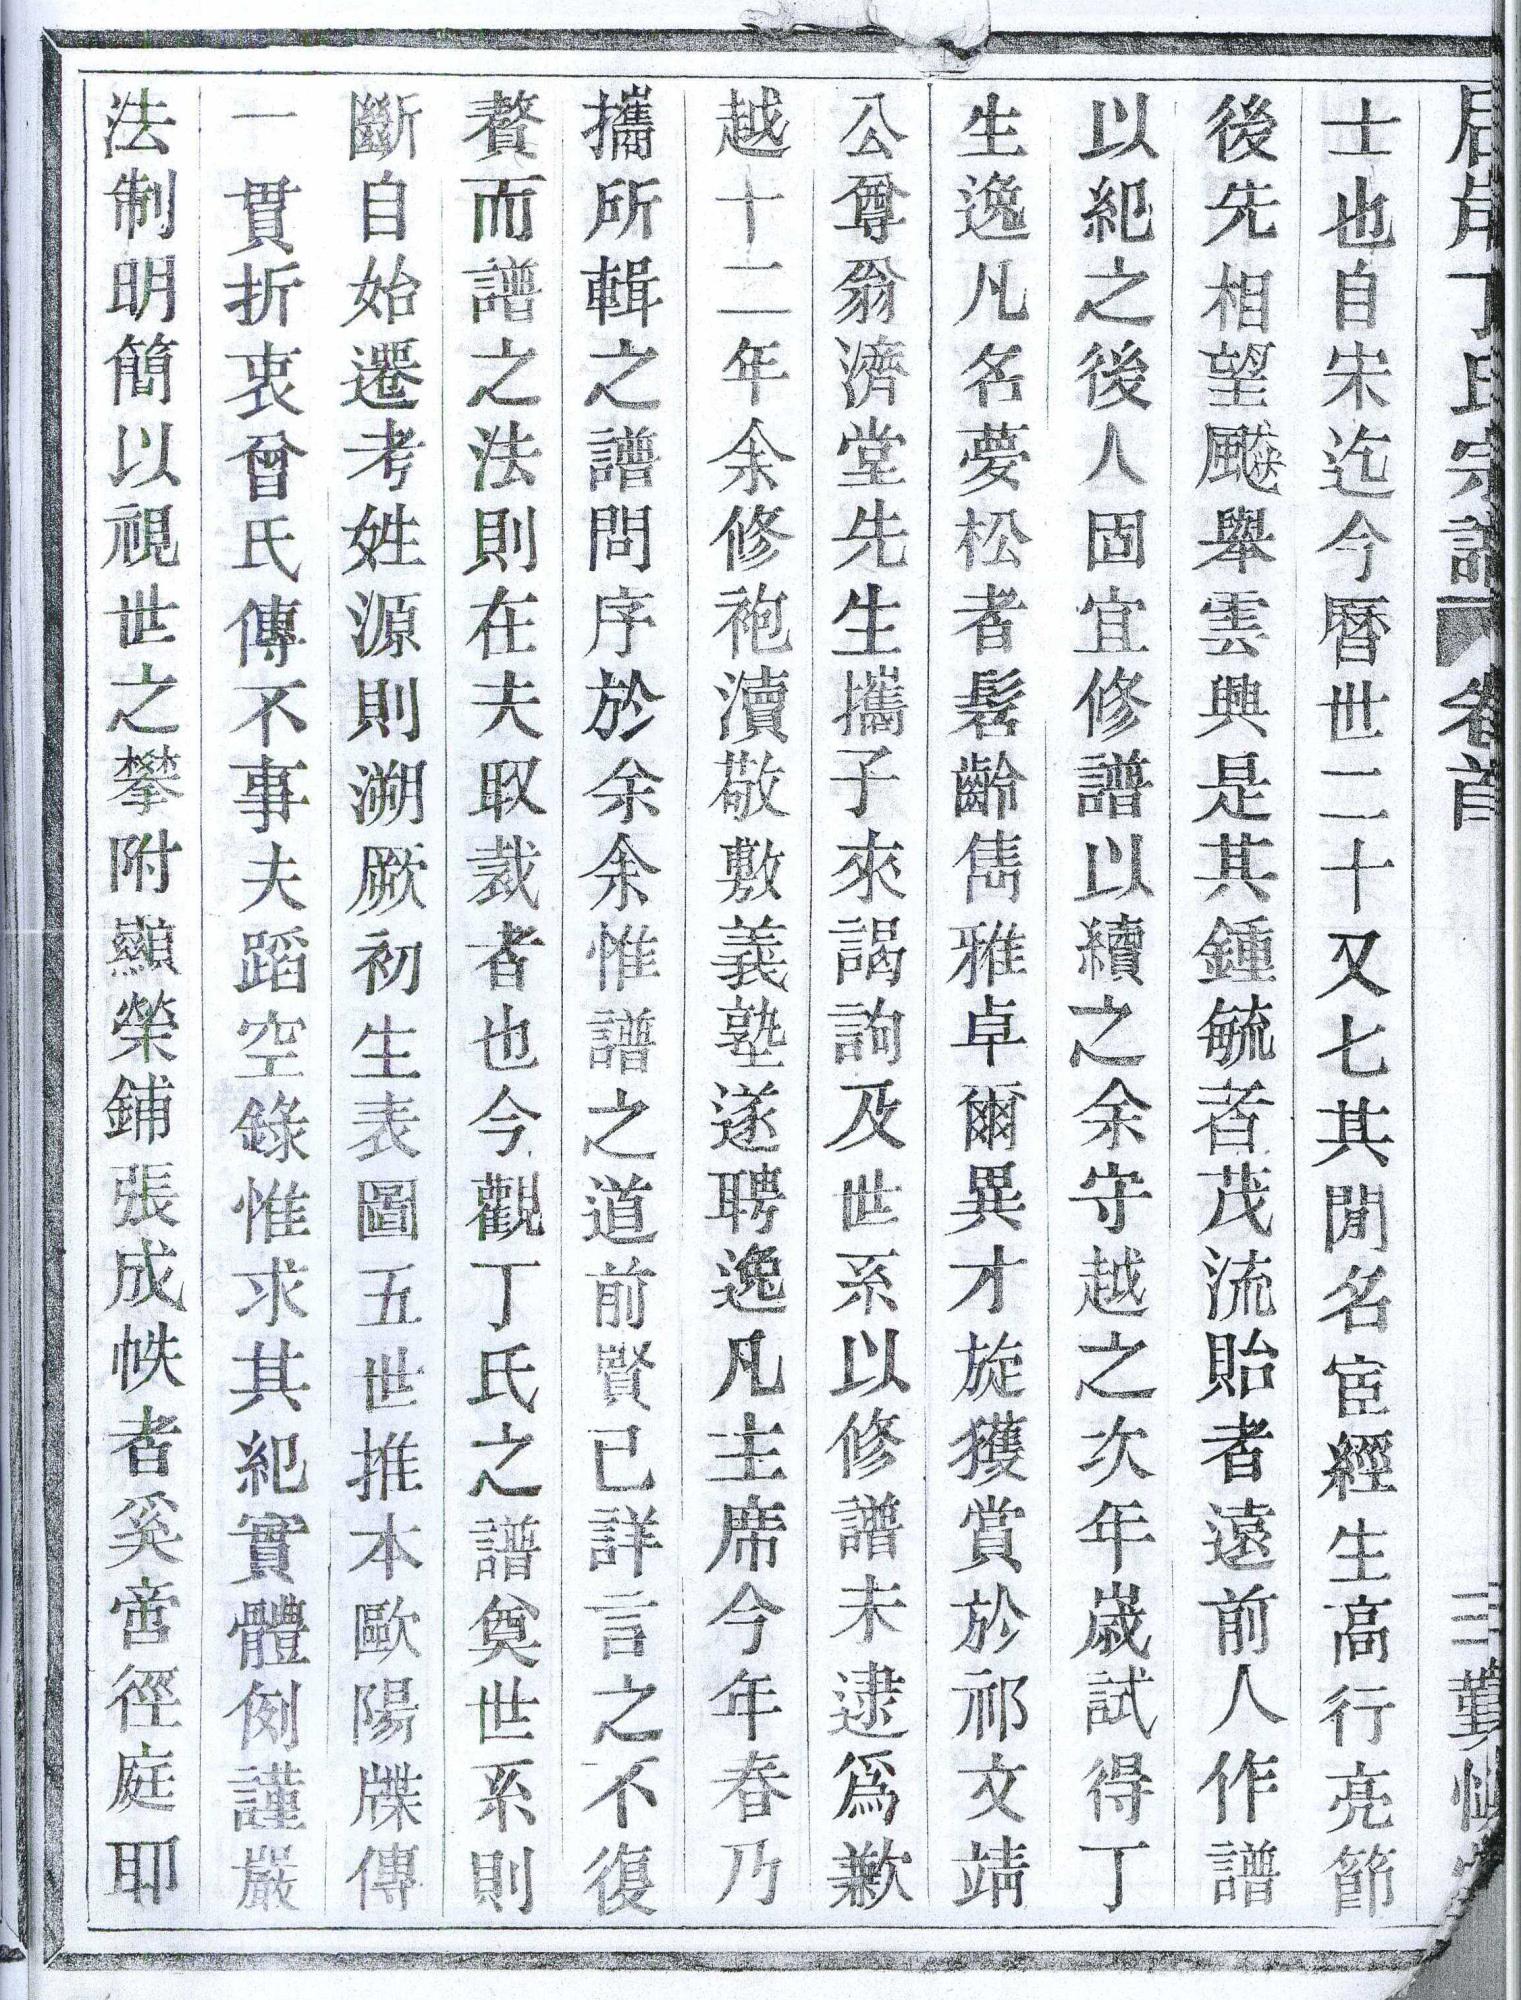 居岸丁氏宗譜 卷首 三 勤慎堂
士也自宋迄今曆世二十又七其閒名宦經生高行亮節
後先相望飈舉雲興是其鍾毓者茂流貽者遠前人作譜
以紀之後人固宜修譜以續之余守越之次年歲試得丁
生逸凡名夢松者髫齡雋雅卓爾異才旋獲賞於祁文靖
公尊翁濟堂先生攜子來謁詢及世系以修譜未逮爲歉
越十二年余修袍瀆敬敷義塾遂聘逸凡主席今年春乃
攜所輯之譜問序於余余惟譜之道前賢已詳言之不復
贅而譜之法則在夫取裁者也今觀丁氏之譜奠世系則
斷自始遷考姓源則溯厥初生表圖五世推本歐陽牒傳
一貫折衷曾氏傳不事夫蹈空錄惟求其紀實體例謹嚴
法制明簡以視世之攀附顯榮鋪張成帙者奚啻徑庭耶